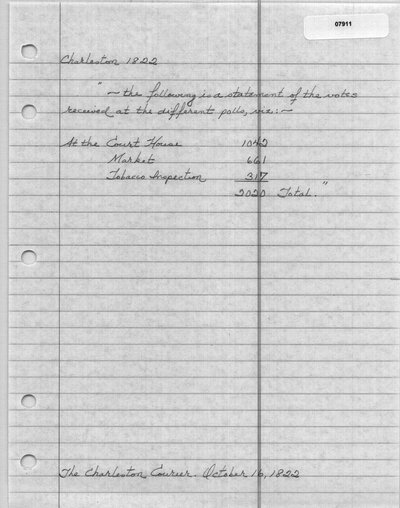 07911
Charleston 1822
" — the following is a statement of the votes
received at the different polls, viz: —
At the Court House 1042
Market 661
Tobacco Inspection 317
2020 Total."
The Charleston Courier. October 16, 1822